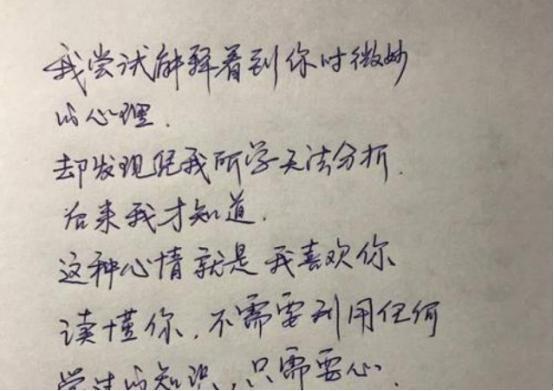 我尝试解释看到你时微妙
的心理.
却发现凭我所学无法分析.
后来我才知道.
这种心情就是我喜欢你
读懂你.不需要利用任何
学术的知识,只需要心.